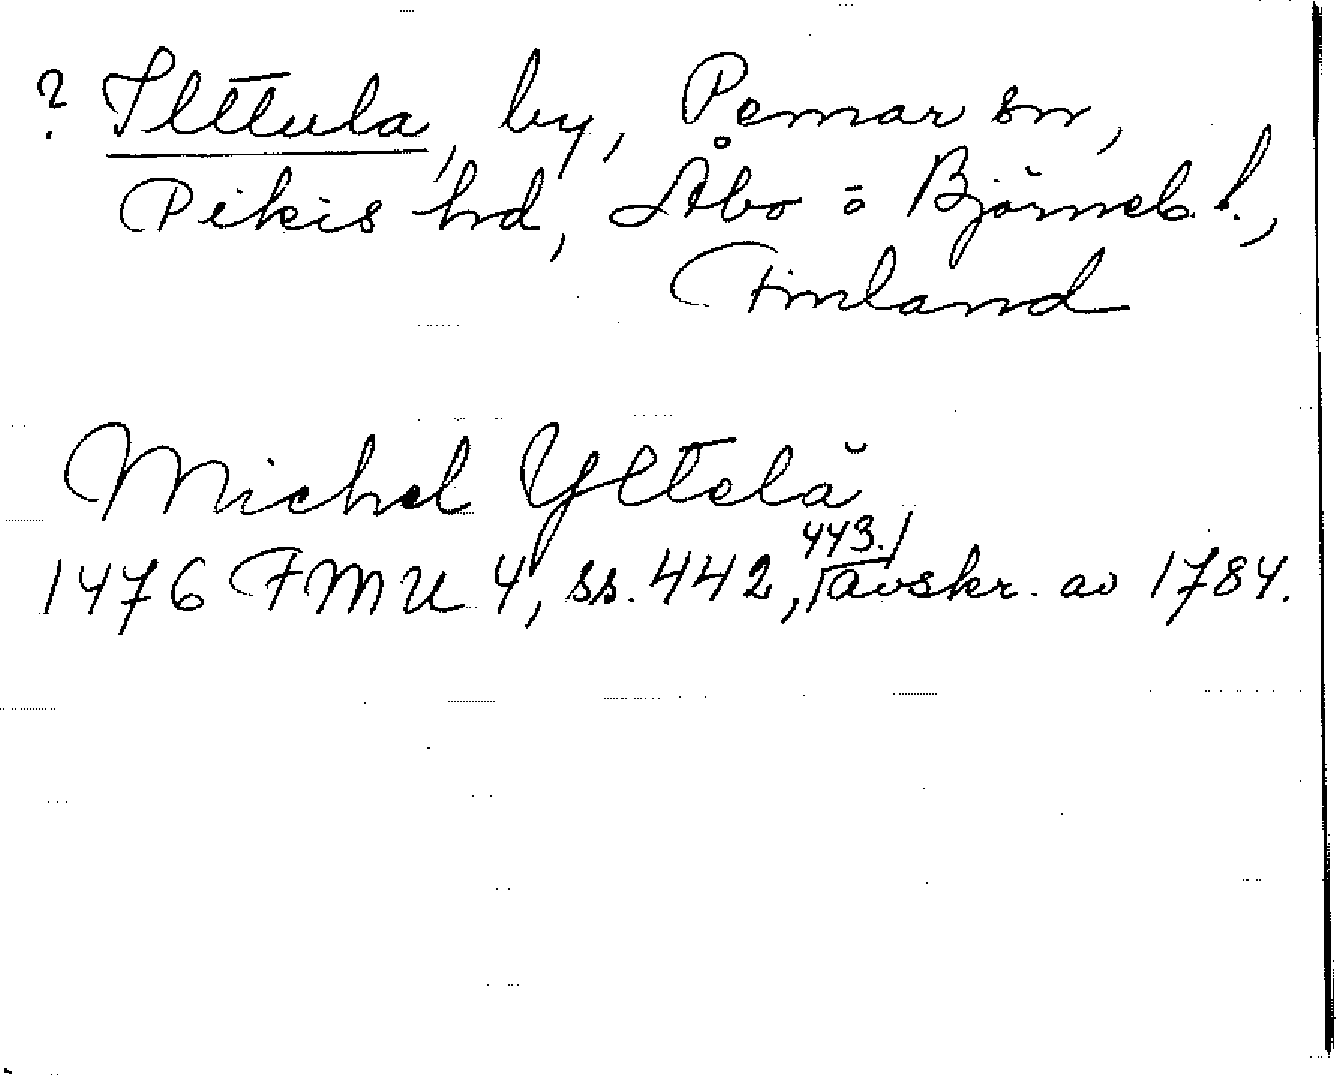 ? Illtula, by, Pemar sn,
Pikis hd, Åbo o Björneb. l.,
Finland
Michel Yltelä
1476 FMU 4, ss. 442, 443. avskr. av 1784.